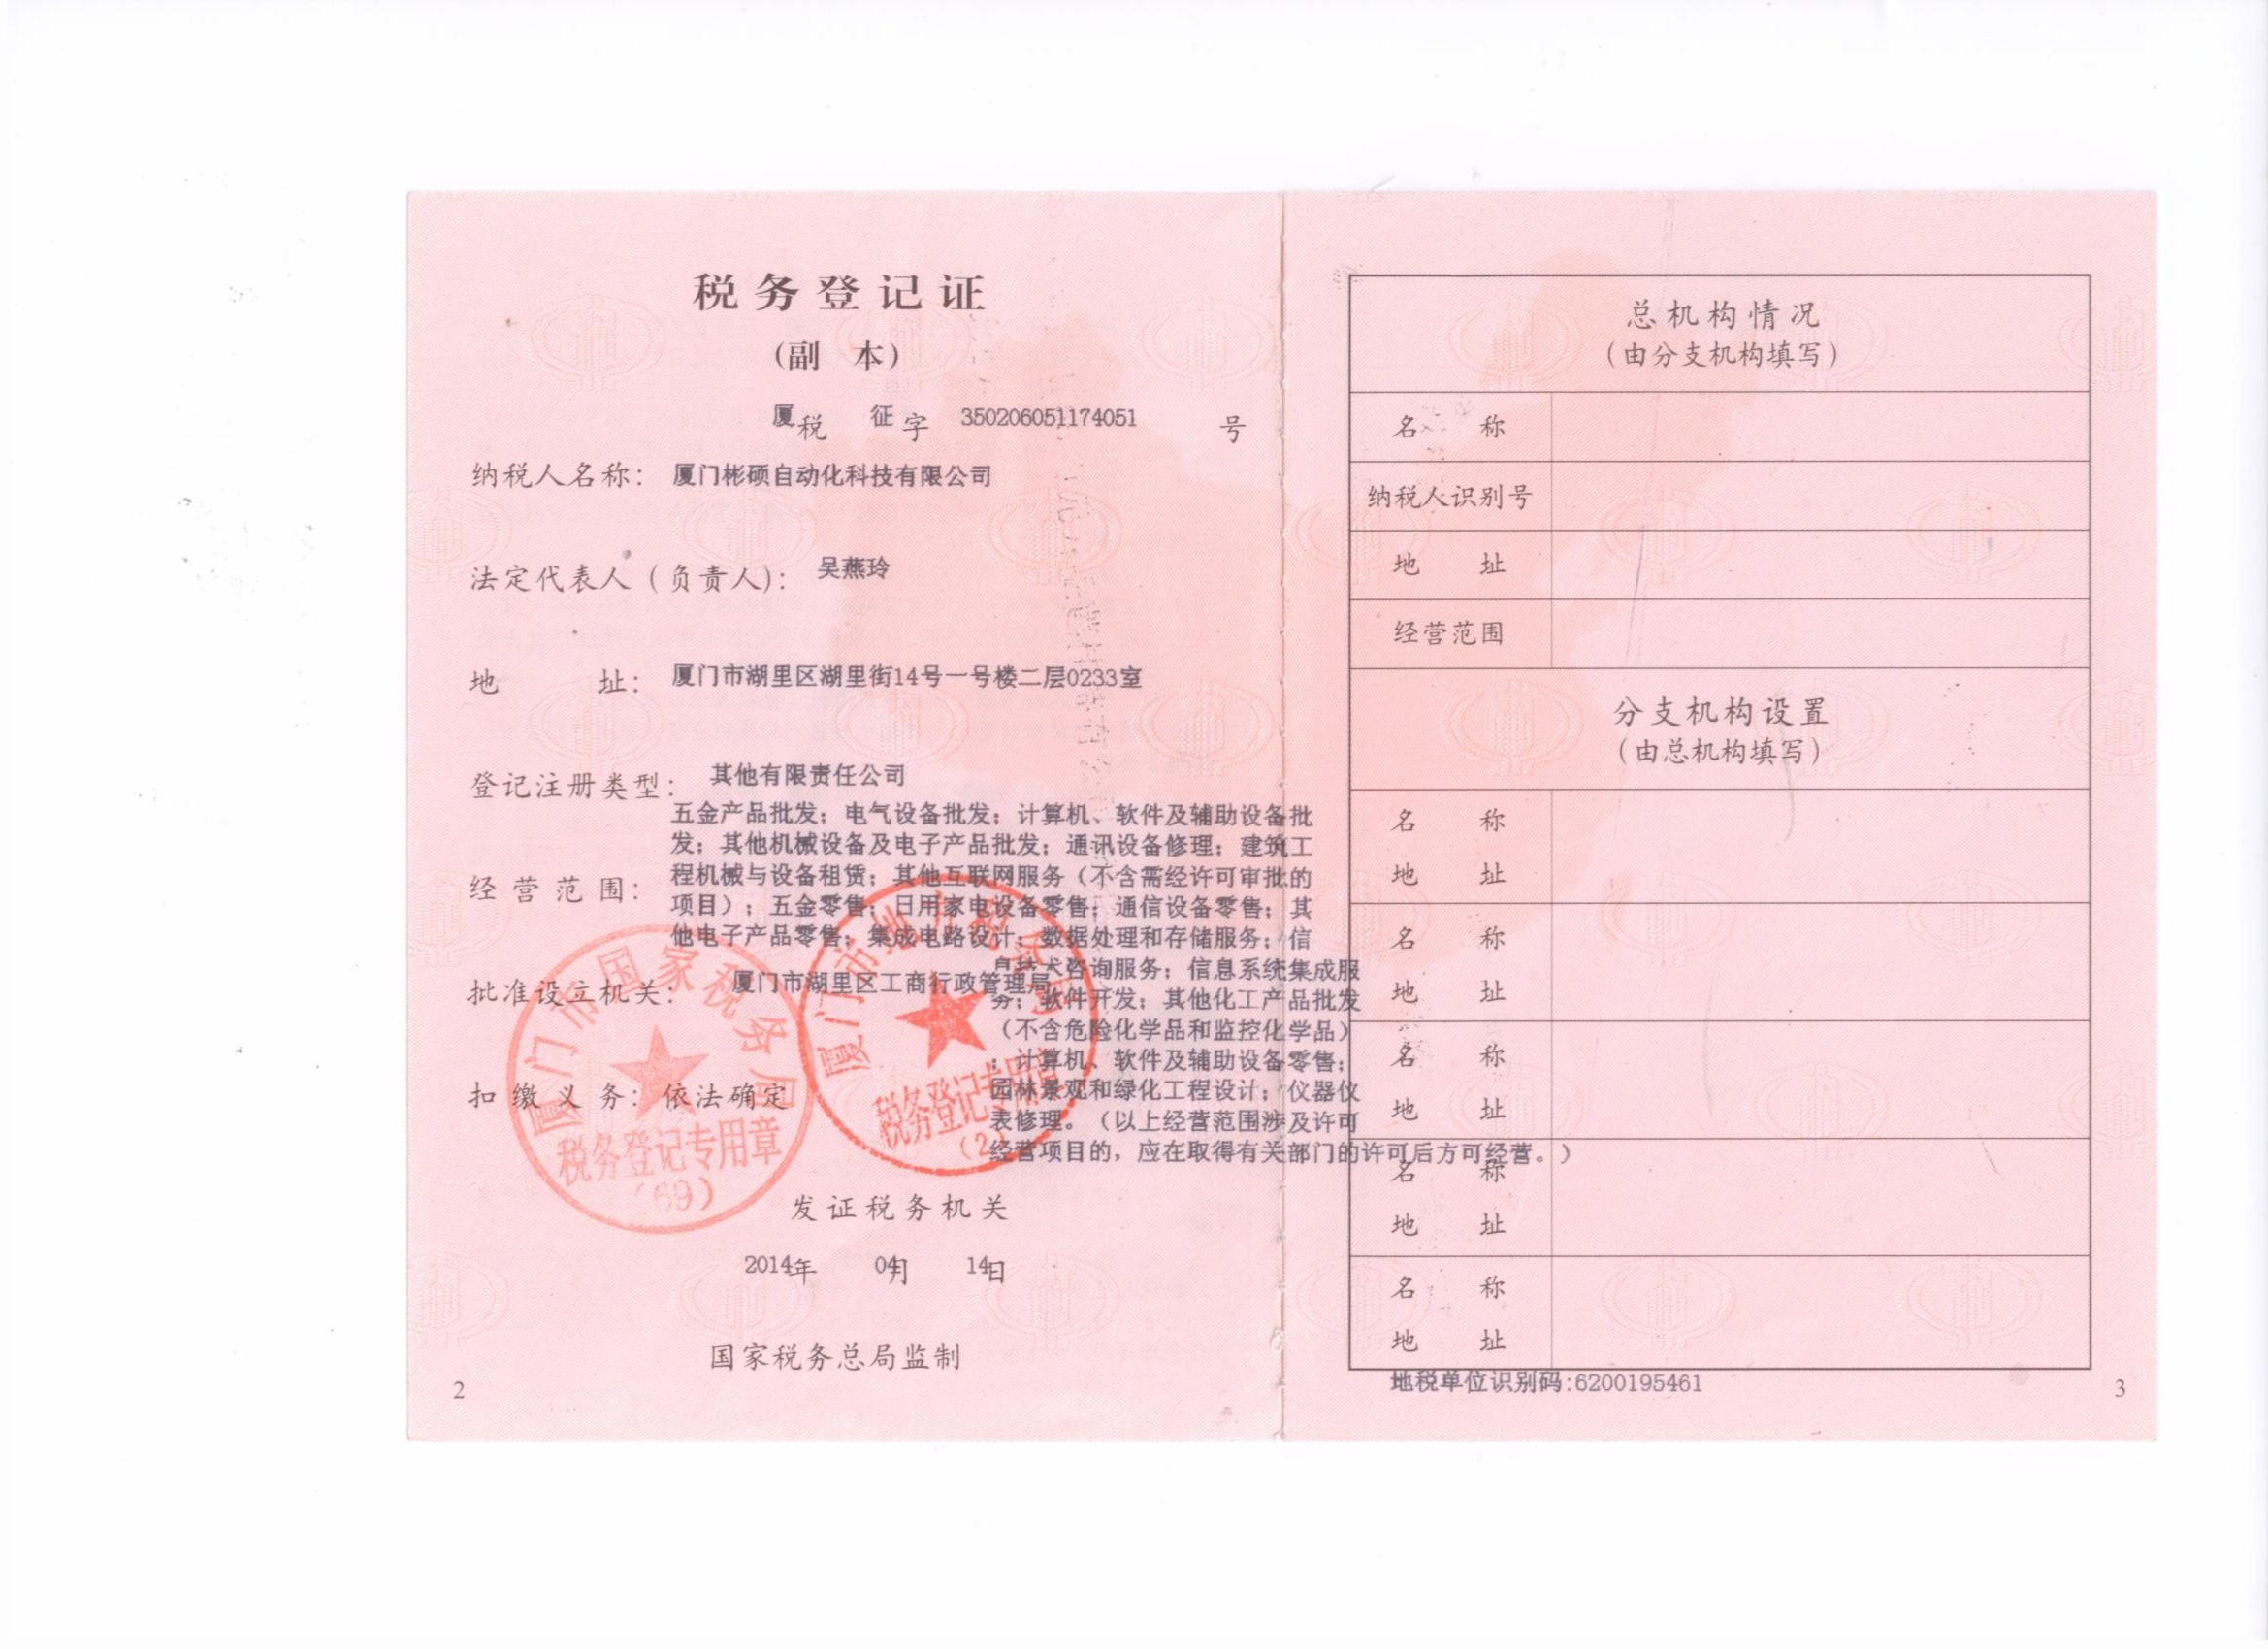 税务登记证
(副 本)
厦税 征字 350206051174051 号
纳税人名称: 厦门彬硕自动化科技有限公司
法定代表人(负责人): 吴燕玲
地 址: 厦门市湖里区湖里街14号一号楼二层0233室
登记注册类型: 其他有限责任公司
五金产品批发;电气设备批发;计算机、软件及辅助设备批
发;其他机械设备及电子产品批发;通讯设备修理;建筑工
经营范围: 程机械与设备租赁;其他互联网服务(不含需经许可审批的
项目);五金零售;日用家电设备零售;通信设备零售;其
他电子产品零售;集成电路设计;数据处理和存储服务;信
息技术咨询服务;信息系统集成服
批准设立机关: 厦门市湖里区工商行政管理局
务;软件开发;其他化工产品批发
(不含危险化学品和监控化学品)
;计算机、软件及辅助设备零售;
园林景观和绿化工程设计;仪器仪
扣缴义务: 依法确定
表修理。(以上经营范围涉及许可
经营项目的,应在取得有关部门的许可后方可经营。)
厦门市国家税务局
税务登记专用章
(69)
厦门市地方税务局
税务登记专用章
(2)
发证税务机关
2014年 04月 14日
国家税务总局监制
2
总机构情况
(由分支机构填写)
名 称
纳税人识别号
地 址
经营范围
分支机构设置
(由总机构填写)
名 称
地 址
名 称
地 址
名 称
地 址
名 称
地 址
名 称
地 址
地税单位识别码:6200195461
3